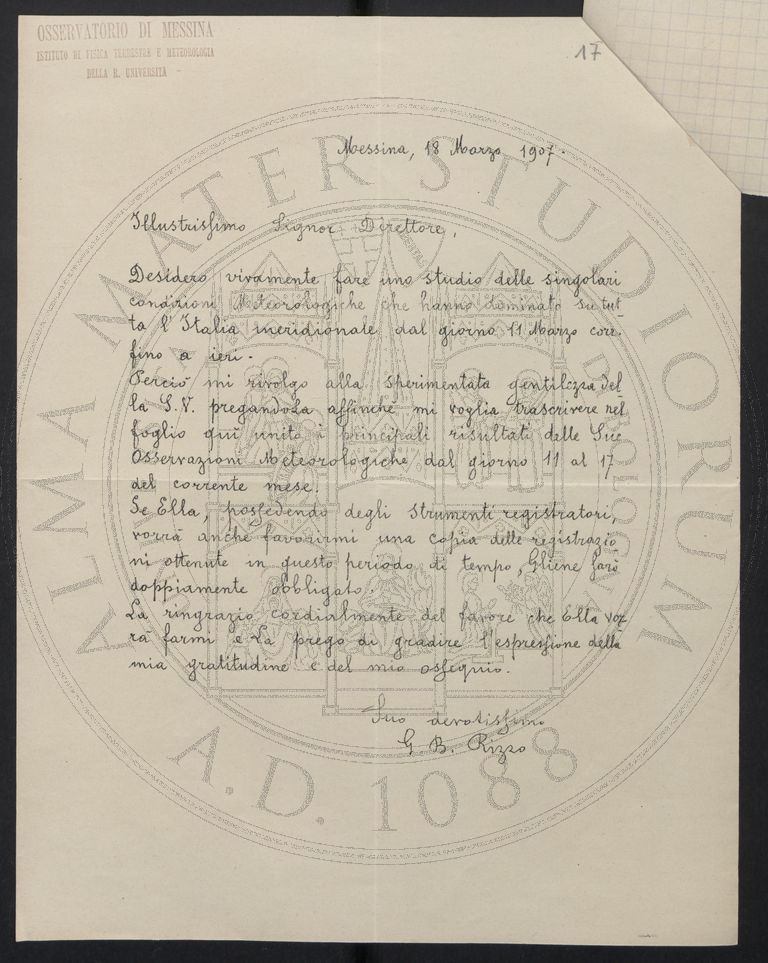 OSSERVATORIO DI MESSINA
ISTITUTO DI FISICA TERRESTRE E METEOROLOGIA
DELLA R. UNIVERSITÀ
17
Messina, 18 Marzo 1907.
Illustrissimo Signor Direttore,
Desidero vivamente fare uno studio delle singolari
condizioni Meteorologiche che hanno dominato su tut-
ta l'Italia meridionale dal giorno 11 Marzo corr.
fino a ieri.
Perciò mi rivolgo alla sperimentata gentilezza del-
la S.V. pregandoLa affinchè mi voglia trascrivere nel
foglio quì unito i principali risultati delle Sue
Osservazioni Meteorologiche dal giorno 11 al 17
del corrente mese.
Se Ella, possedendo degli strumenti registratori,
vorrà anche favorirmi una copia delle registrazio
ni ottenute in questo periodo di tempo, Gliene sarò
doppiamente obbligato.
La ringrazio cordialmente del favore che Ella vor
rà farmi e La prego di gradire l'espressione della
mia gratitudine e del mio ossequio.
Suo devotissimo
G. B. Rizzo
ALMA MATER STUDIORUM
A.D. 1088